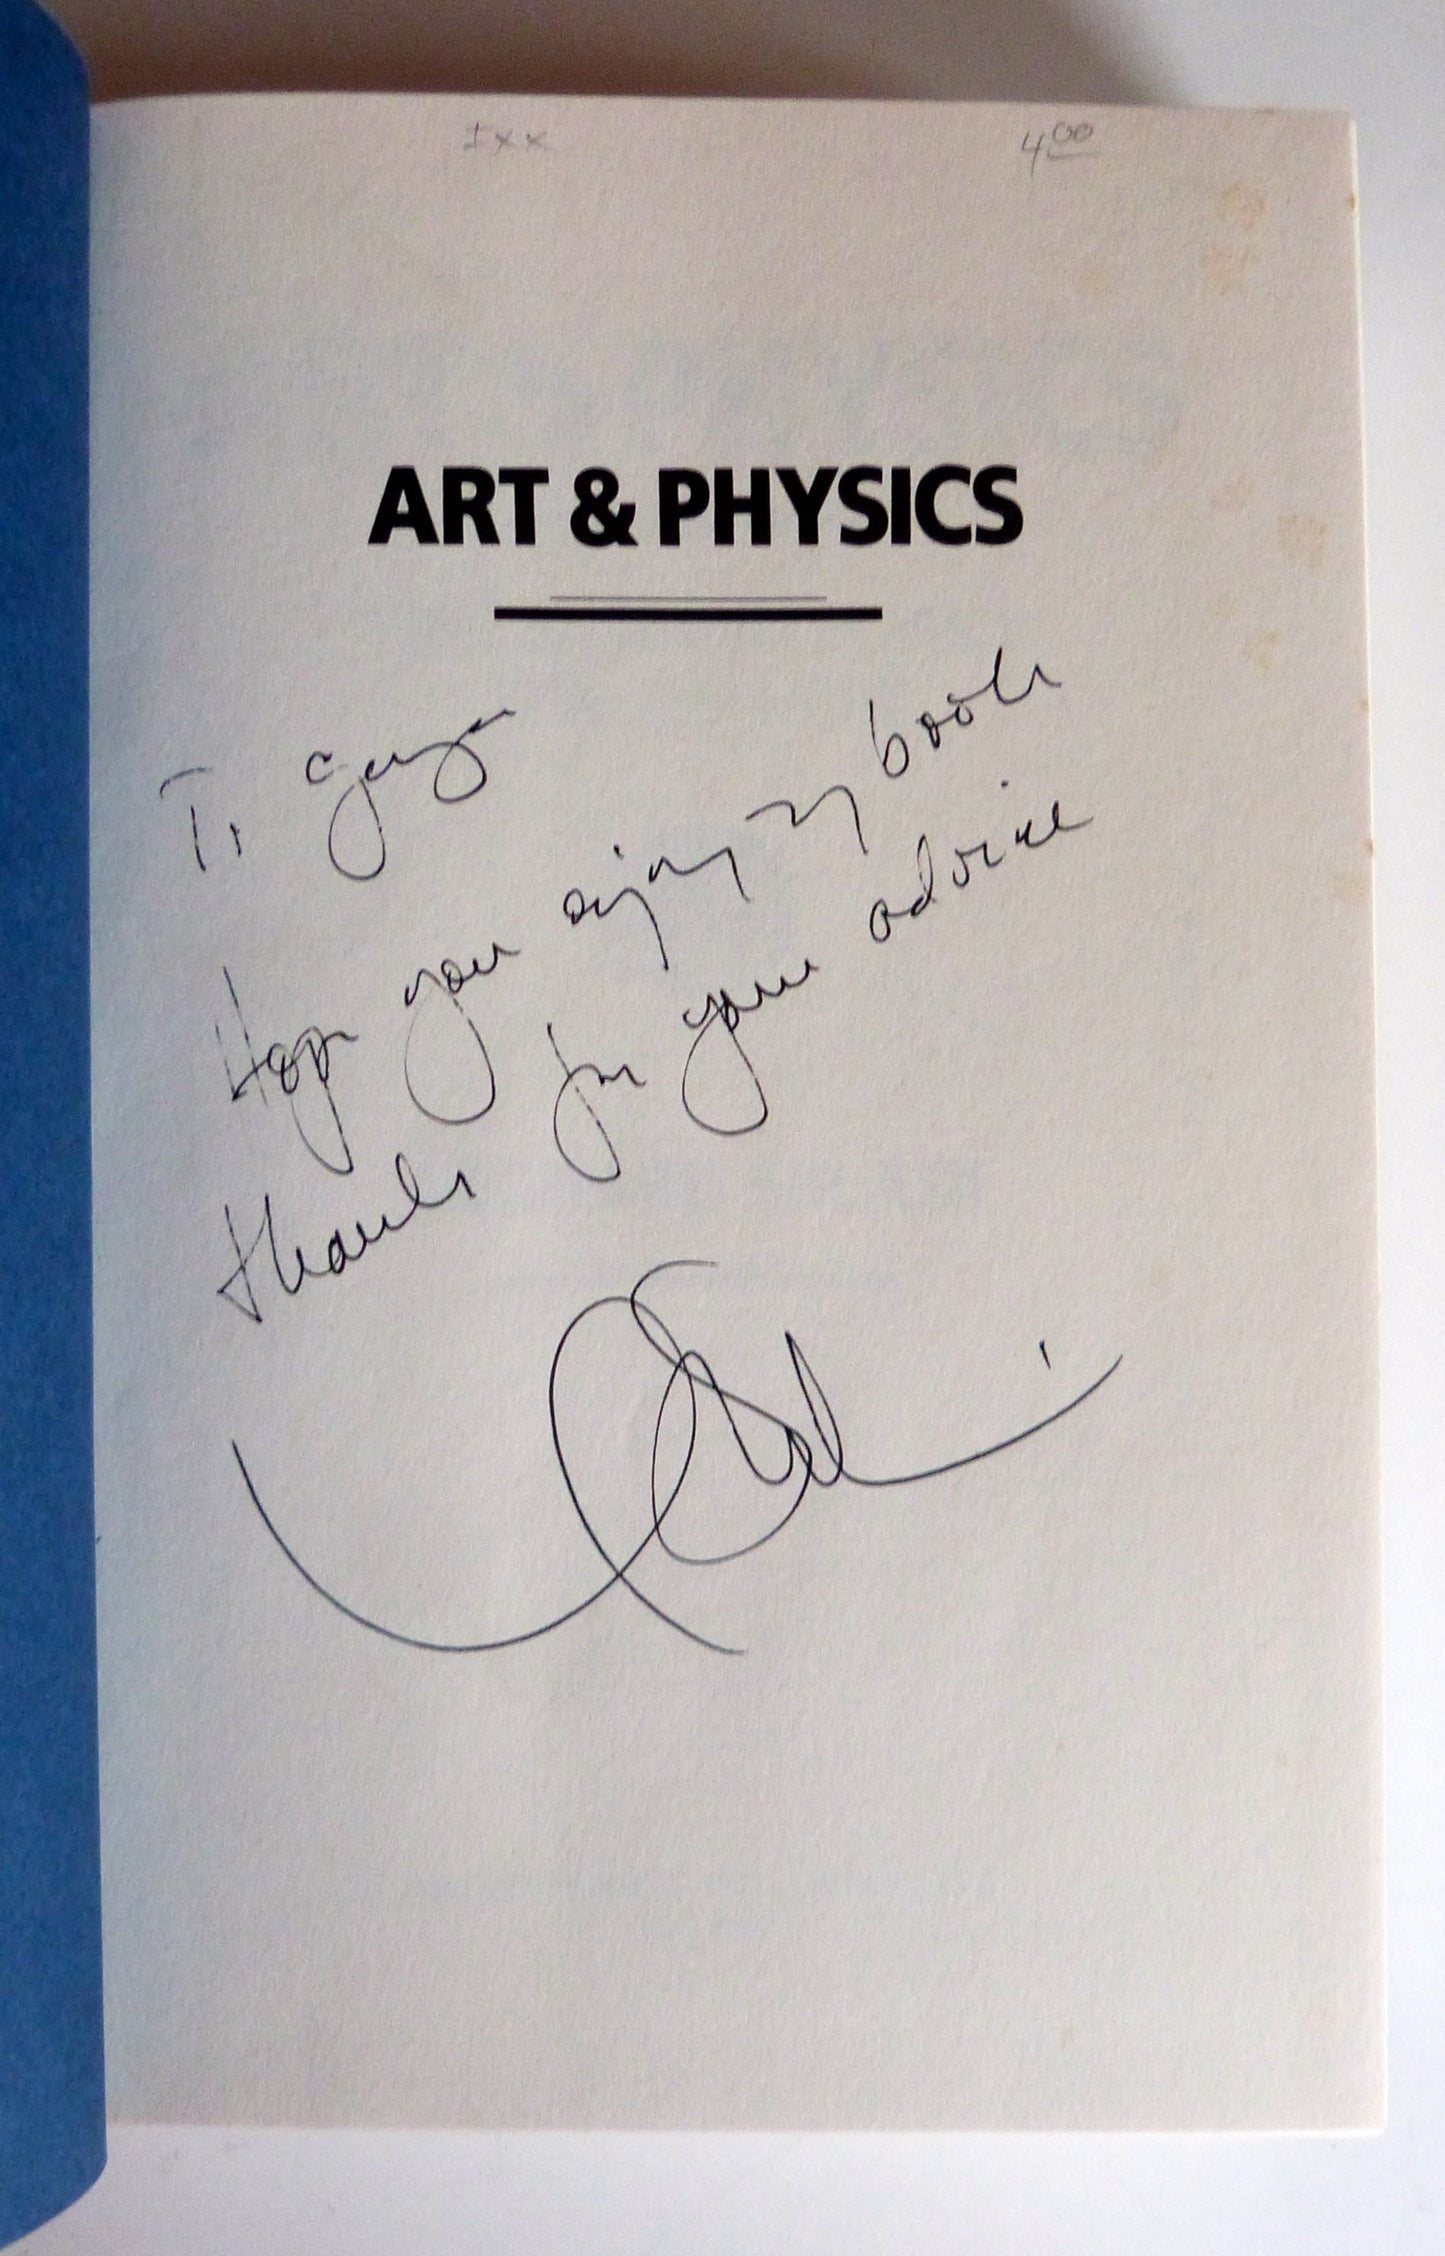 1xx 4.00
ART & PHYSICS
To
Hope you enjoy my book
thanks for your advice